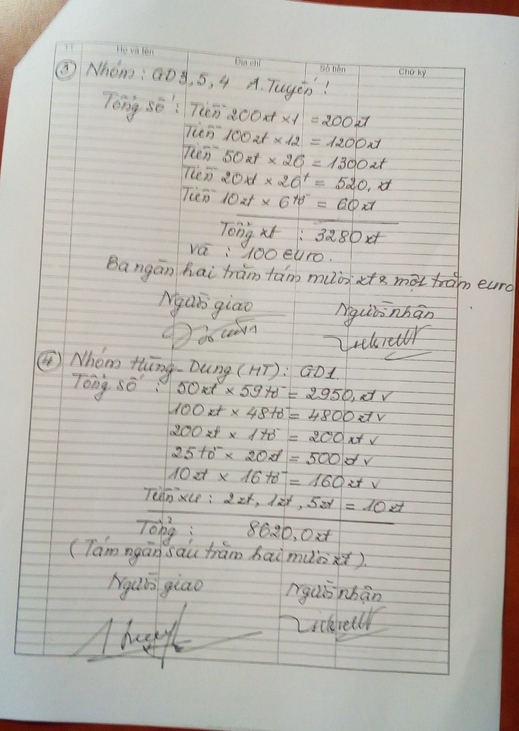 TT Họ và tên Địa chỉ Số tiền Chữ ký
③ Nhóm: GD3,5,4 A.Tuyến!
Tổng số: Tiền 200zł x 1 = 200zł
Tiền 100zł x 12 = 1200zł
Tiền 50zł x 26 = 1300zł
Tiền 20zł x 26t = 520,zł
Tiền 10zł x 6tờ = 60zł
Tổng zł : 3280zł
và : 100 euro.
Ba ngăn hai trăm tám mươi zł & một trăm euro
Người giao Người nhận
④ Nhóm Hùng-Dung (HT): GD1
Tổng số : 50zł x 59tờ = 2950,zł v
100zł x 48tờ = 4800zł v
200zł x 1tờ = 200zł v
25tờ x 20zł = 500zł v
10zł x 16tờ = 160zł v
Tiền xu : 2zł, 1zł, 5zł = 10zł
Tổng: 8620,0zł
(Tám ngăn sáu trăm hai mươi zł).
Người giao Người nhận